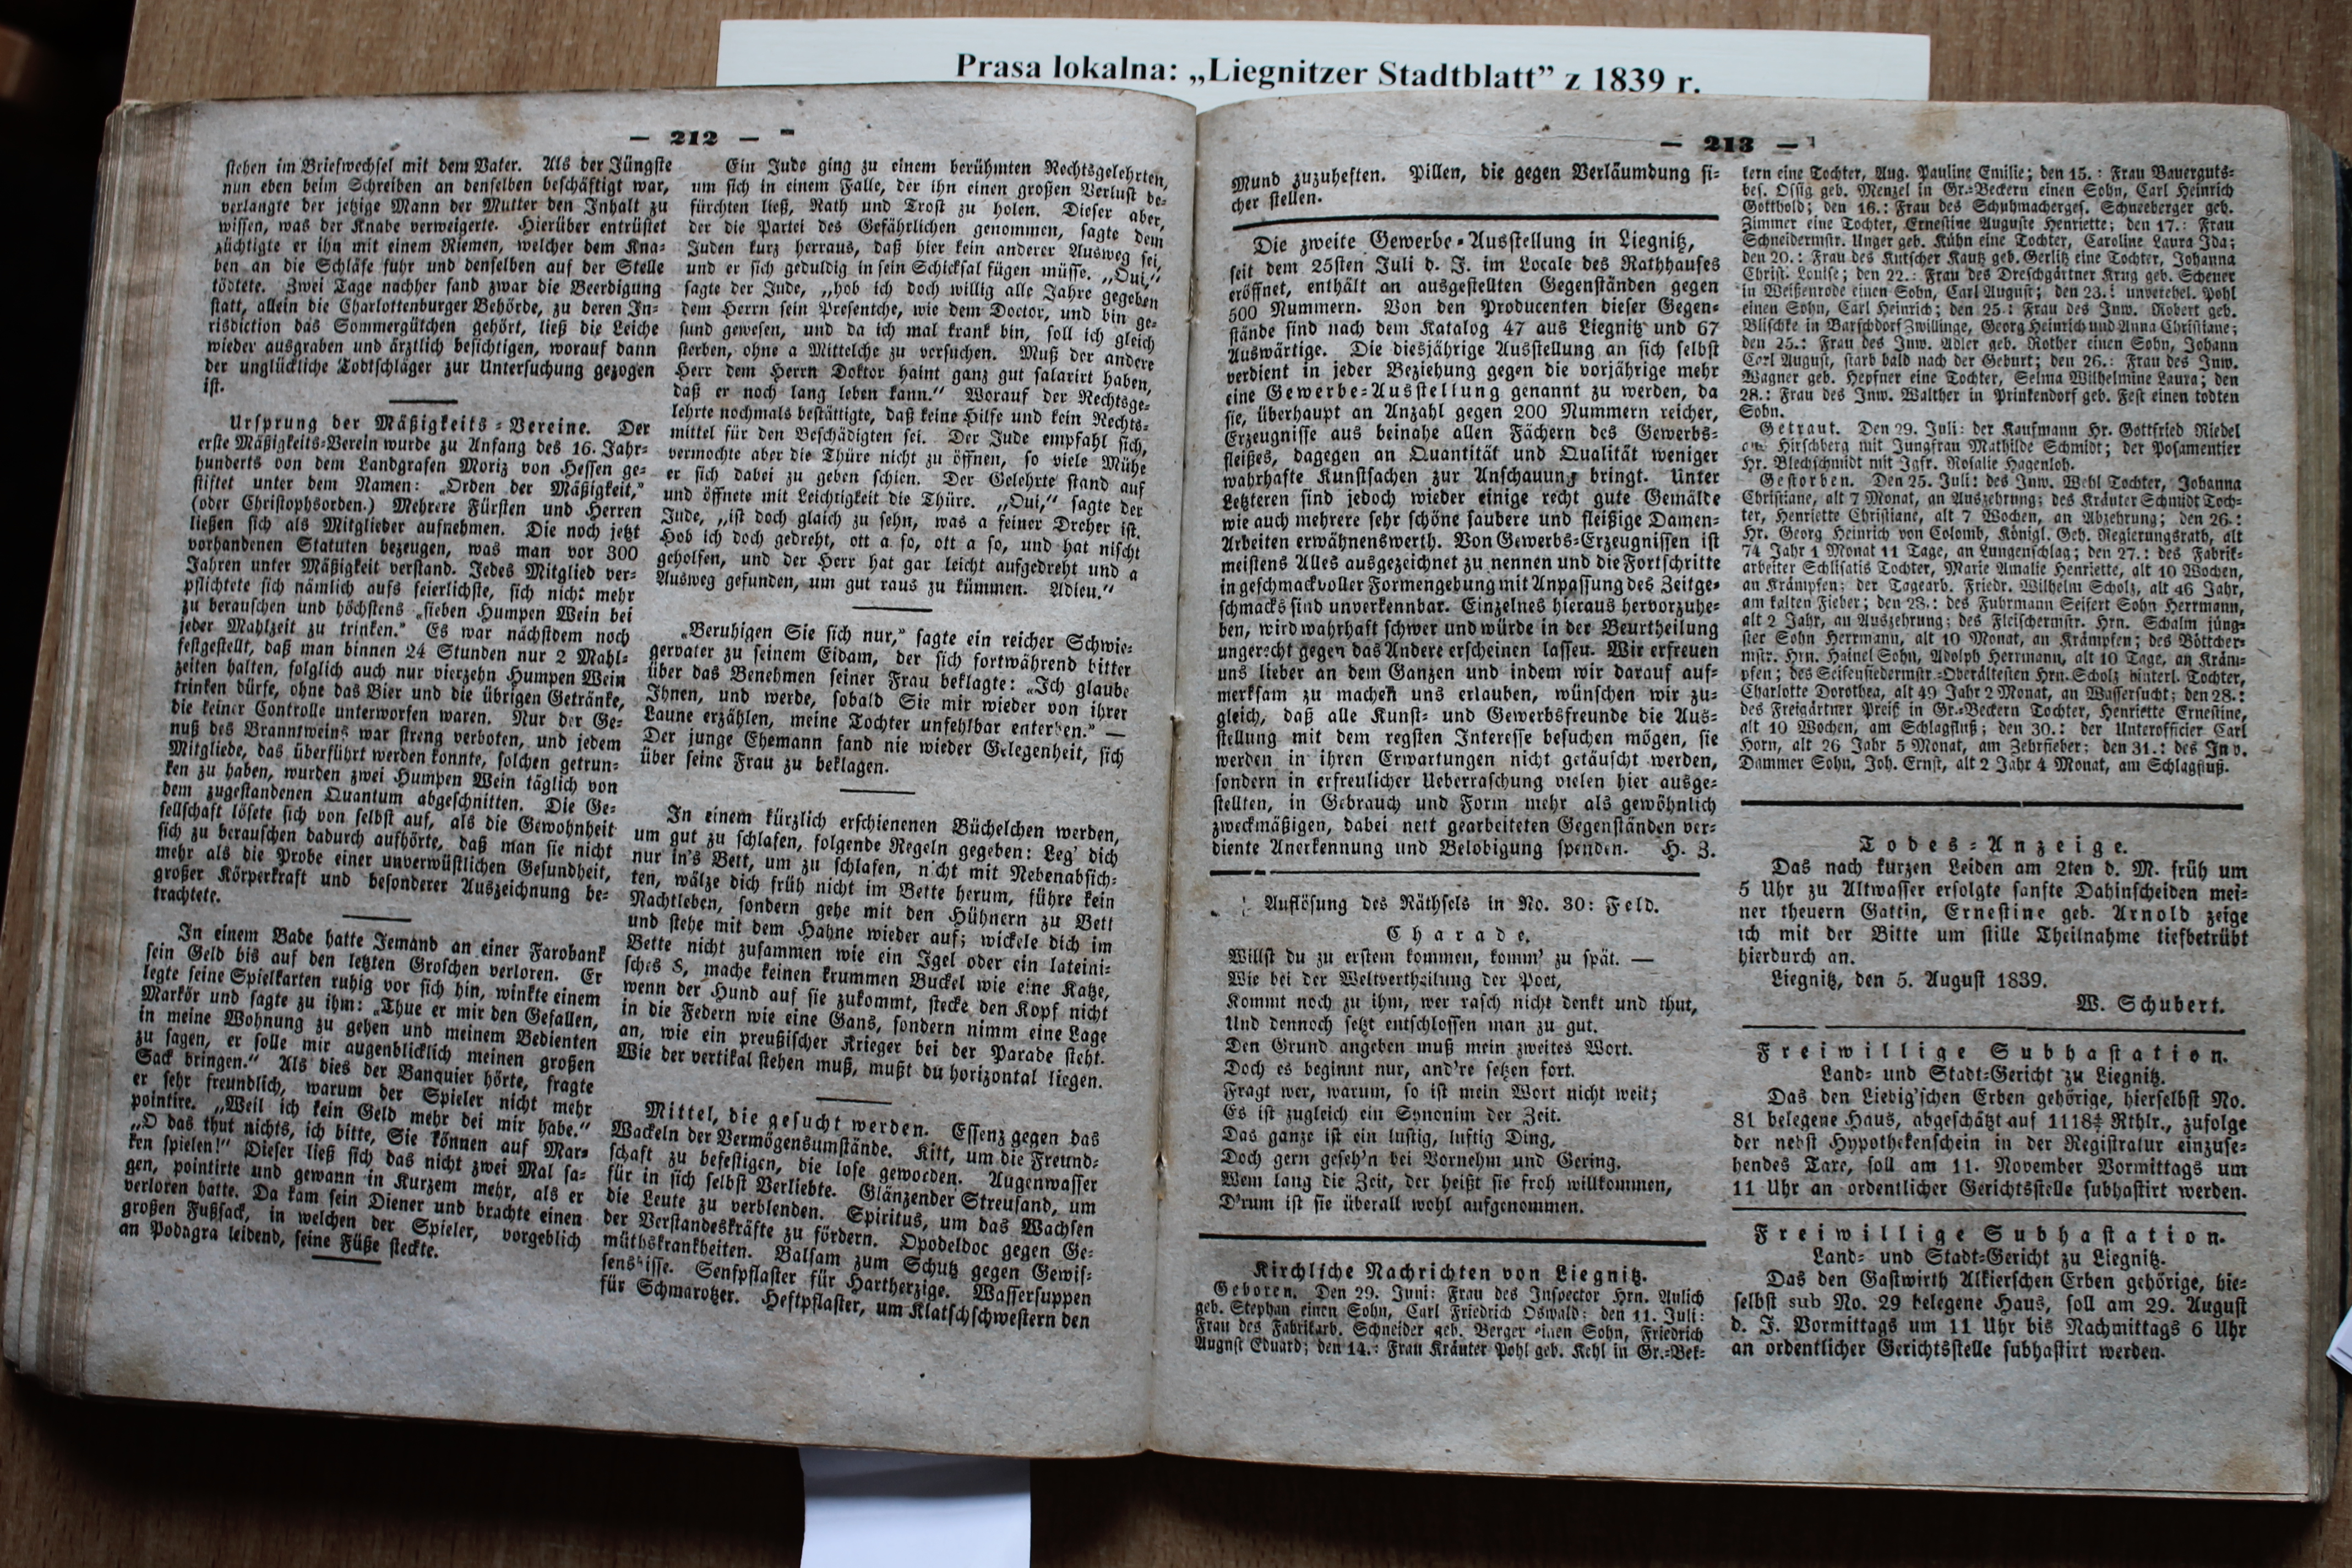 Prasa lokalna: „Liegnitzer Stadtblatt” z 1839 r.
— 212 —
stehen im Briefwechsel mit dem Vater. Als der Jüngste
nun eben beim Schreiben an denselben beschäftigt war,
verlangte der jetzige Mann der Mutter den Inhalt zu
wissen, was der Knabe verweigerte. Hierüber entrüstet
züchtigte er ihn mit einem Riemen, welcher dem Kna-
ben an die Schläfe fuhr und denselben auf der Stelle
tödtete. Zwei Tage nachher fand zwar die Beerdigung
statt, allein die Charlottenburger Behörde, zu deren Ju-
risdiction das Sommergütchen gehört, ließ die Leiche
wieder ausgraben und ärztlich besichtigen, worauf dann
der unglückliche Todtschläger zur Untersuchung gezogen
ist.
Ursprung der Mäßigkeits-Vereine. Der
erste Mäßigkeits-Verein wurde zu Anfang des 16. Jahr-
hunderts von dem Landgrafen Moriz von Hessen ge-
stiftet unter dem Namen: „Orden der Mäßigkeit,"
(oder Christophsorden.) Mehrere Fürsten und Herren
ließen sich als Mitglieder aufnehmen. Die noch jetzt
vorhandenen Statuten bezeugen, was man vor 300
Jahren unter Mäßigkeit verstand. Jedes Mitglied ver-
pflichtete sich nämlich aufs feierlichste, sich nicht mehr
zu berauschen und höchstens „sieben Humpen Wein bei
jeder Mahlzeit zu trinken." Es war nächstdem noch
festgestellt, daß man binnen 24 Stunden nur 2 Mahl-
zeiten halten, folglich auch nur vierzehn Humpen Wein
trinken dürfe, ohne das Bier und die übrigen Getränke,
die keiner Controlle unterworfen waren. Nur der Ge-
nuß des Branntweins war streng verboten, und jedem
Mitgliede, das überführt werden konnte, solchen getrun-
ken zu haben, wurden zwei Humpen Wein täglich von
dem zugestandenen Quantum abgeschnitten. Die Ge-
sellschaft lösete sich von selbst auf, als die Gewohnheit
sich zu berauschen dadurch aufhörte, daß man sie nicht
mehr als die Probe einer unverwüstlichen Gesundheit,
großer Körperkraft und besonderer Auszeichnung be-
trachtete.
In einem Bade hatte Jemand an einer Farobank
sein Geld bis auf den letzten Groschen verloren. Er
legte seine Spielkarten ruhig vor sich hin, winkte einem
Markör und sagte zu ihm: „Thue er mir den Gefallen,
in meine Wohnung zu gehen und meinem Bedienten
zu sagen, er solle mir augenblicklich meinen großen
Sack bringen." Als dies der Banquier hörte, fragte
er sehr freundlich, warum der Spieler nicht mehr
pointire. „Weil ich kein Geld mehr bei mir habe."
„O das thut nichts, ich bitte, Sie können auf Mar-
ken spielen!" Dieser ließ sich das nicht zwei Mal sa-
gen, pointirte und gewann in Kurzem mehr, als er
verloren hatte. Da kam sein Diener und brachte einen
großen Fußsack, in welchen der Spieler, vorgeblich
an Podagra leidend, seine Füße steckte.
Ein Jude ging zu einem berühmten Rechtsgelehrten,
um sich in einem Falle, der ihn einen großen Verlust be-
fürchten ließ, Rath und Trost zu holen. Dieser aber,
der die Partei des Gefährlichen genommen, sagte dem
Juden kurz herraus, daß hier kein anderer Ausweg sei,
und er sich geduldig in sein Schicksal fügen müsse. „Oui,"
sagte der Jude, „hob ich doch willig alle Jahre gegeben
dem Herrn sein Presentche, wie dem Doctor, und bin ge-
sund gewesen, und da ich mal krank bin, soll ich gleich
sterben, ohne a Mittelche zu versuchen. Muß der andere
Herr dem Herrn Doktor haint ganz gut salarirt haben,
daß er noch lang leben kann." Worauf der Rechtsge-
lehrte nochmals bestättigte, daß keine Hilfe und kein Rechts-
mittel für den Beschädigten sei. Der Jude empfahl sich,
vermochte aber die Thüre nicht zu öffnen, so viele Mühe
er sich dabei zu geben schien. Der Gelehrte stand auf
und öffnete mit Leichtigkeit die Thüre. „Oui," sagte der
Jude, „ist doch glaich zu sehn, was a feiner Dreher ist.
Hob ich doch gedreht, ott a so, ott a so, und hat nischt
geholfen, und der Herr hat gar leicht aufgedreht und a
Ausweg gefunden, um gut raus zu kümmen. Adieu."
„Beruhigen Sie sich nur," sagte ein reicher Schwie-
gervater zu seinem Eidam, der sich fortwährend bitter
über das Benehmen seiner Frau beklagte: „Ich glaube
Ihnen, und werde, sobald Sie mir wieder von ihrer
Laune erzählen, meine Tochter unfehlbar enterben." —
Der junge Ehemann fand nie wieder Gelegenheit, sich
über seine Frau zu beklagen.
In einem kürzlich erschienenen Büchelchen werden,
um gut zu schlafen, folgende Regeln gegeben: Leg' dich
nur in's Bett, um zu schlafen, nicht mit Nebenabsich-
ten, wälze dich früh nicht im Bette herum, führe kein
Nachtleben, sondern gehe mit den Hühnern zu Bett
und stehe mit dem Hahne wieder auf; wickele dich im
Bette nicht zusammen wie ein Igel oder ein lateini-
sches S, mache keinen krummen Buckel wie eine Katze,
wenn der Hund auf sie zukommt, stecke den Kopf nicht
in die Federn wie eine Gans, sondern nimm eine Lage
an, wie ein preußischer Krieger bei der Parade steht.
Wie der vertikal stehen muß, mußt du horizontal liegen.
Mittel, die gesucht werden. Essenz gegen das
Wackeln der Vermögensumstände. Kitt, um die Freund-
schaft zu befestigen, die lose geworden. Augenwasser
für in sich selbst Verliebte. Glänzender Streusand, um
die Leute zu verblenden. Spiritus, um das Wachsen
der Verstandeskräfte zu fördern. Opodeldoc gegen Ge-
müthskrankheiten. Balsam zum Schutz gegen Gewis-
sensbisse. Senfpflaster für Hartherzige. Wassersuppen
für Schmarotzer. Heftpflaster, um Klatschschwestern den
— 213 —
Mund zuzuheften. Pillen, die gegen Verläumdung si-
cher stellen.
Die zweite Gewerbe-Ausstellung in Liegnitz,
seit dem 25sten Juli d. J. im Locale des Rathhauses
eröffnet, enthält an ausgestellten Gegenständen gegen
500 Nummern. Von den Producenten dieser Gegen-
stände sind nach dem Katalog 47 aus Liegnitz und 67
Auswärtige. Die diesjährige Ausstellung an sich selbst
verdient in jeder Beziehung gegen die vorjährige mehr
eine Gewerbe-Ausstellung genannt zu werden, da
sie, überhaupt an Anzahl gegen 200 Nummern reicher,
Erzeugnisse aus beinahe allen Fächern des Gewerbs-
fleißes, dagegen an Quantität und Qualität weniger
wahrhafte Kunstsachen zur Anschauung bringt. Unter
Letzteren sind jedoch wieder einige recht gute Gemälde
wie auch mehrere sehr schöne saubere und fleißige Damen-
Arbeiten erwähnenswerth. Von Gewerbs-Erzeugnissen ist
meistens Alles ausgezeichnet zu nennen und die Fortschritte
in geschmackvoller Formengebung mit Anpassung des Zeitge-
schmacks sind unverkennbar. Einzelnes hieraus hervorzuhe-
ben, wird wahrhaft schwer und würde in der Beurtheilung
ungerecht gegen das Andere erscheinen lassen. Wir erfreuen
uns lieber an dem Ganzen und indem wir darauf auf-
merksam zu machen uns erlauben, wünschen wir zu-
gleich, daß alle Kunst- und Gewerbsfreunde die Aus-
stellung mit dem regsten Interesse besuchen mögen, sie
werden in ihren Erwartungen nicht getäuscht werden,
sondern in erfreulicher Ueberraschung vielen hier ausge-
stellten, in Gebrauch und Form mehr als gewöhnlich
zweckmäßigen, dabei nett gearbeiteten Gegenständen ver-
diente Anerkennung und Belobigung spenden. H. Z.
Auflösung des Räthsels in No. 30: Feld.
Charade.
Willst du zu erstem kommen, komm' zu spät. —
Wie bei der Weltvertheilung der Poet,
Kommt noch zu ihm, wer rasch nicht denkt und thut,
Und dennoch setzt entschlossen man zu gut.
Den Grund angeben muß mein zweites Wort.
Doch es beginnt nur, and're setzen fort.
Fragt wer, warum, so ist mein Wort nicht weit;
Es ist zugleich ein Synonim der Zeit.
Das ganze ist ein lustig, luftig Ding,
Doch gern geseh'n bei Vornehm und Gering.
Wem lang die Zeit, der heißt sie froh willkommen,
D'rum ist sie überall wohl aufgenommen.
Kirchliche Nachrichten von Liegnitz.
Geboren. Den 29. Juni: Frau des Inspector Hrn. Aulich
geb. Stephan einen Sohn, Carl Friedrich Oswald; den 11. Juli:
Frau des Fabrikarb. Schneider geb. Berger einen Sohn, Friedrich
August Eduard; den 14.: Frau Kräuter Pohl geb. Kehl in Gr.-Bek-
kern eine Tochter, Aug. Pauline Emilie; den 15.: Frau Bauerguts-
bes. Ossig geb. Menzel in Gr.-Beckern einen Sohn, Carl Heinrich
Gotthold; den 16.: Frau des Schuhmacherges. Schneeberger geb.
Zimmer eine Tochter, Ernestine Auguste Henriette; den 17.: Frau
Schneidermstr. Unger geb. Kühn eine Tochter, Caroline Laura Ida;
den 20.: Frau des Kutscher Kautz geb. Gerlitz eine Tochter, Johanna
Christ. Louise; den 22.: Frau des Dreschgärtner Krug geb. Schener
in Weißenrode einen Sohn, Carl August; den 23.: unverehel. Pohl
einen Sohn, Carl Heinrich; den 25.: Frau des Inw. Robert geb.
Blischke in Barschdorf Zwillinge, Georg Heinrich und Anna Christiane;
den 25.: Frau des Inw. Adler geb. Rother einen Sohn, Johann
Carl August, starb bald nach der Geburt; den 26.: Frau des Inw.
Wagner geb. Hepfner eine Tochter, Selma Wilhelmine Laura; den
28.: Frau des Inw. Walther in Prinkendorf geb. Fest einen todten
Sohn.
Getraut. Den 29. Juli: der Kaufmann Hr. Gottfried Riedel
aus Hirschberg mit Jungfrau Mathilde Schmidt; der Posamentier
Hr. Blechschmidt mit Jgfr. Rosalie Hagenloh.
Gestorben. Den 25. Juli: des Inw. Wehl Tochter, Johanna
Christiane, alt 7 Monat, an Auszehrung; des Kräuter Schmidt Toch-
ter, Henriette Christiane, alt 7 Wochen, an Abzehrung; den 26.:
Hr. Georg Heinrich von Colomb, Königl. Geh. Regierungsrath, alt
74 Jahr 1 Monat 11 Tage, an Lungenschlag; den 27.: des Fabrik-
arbeiter Schlisatis Tochter, Marie Amalie Henriette, alt 10 Wochen,
an Krämpfen; der Tagearb. Friedr. Wilhelm Scholz, alt 46 Jahr,
am kalten Fieber; den 28.: des Fuhrmann Seifert Sohn Herrmann,
alt 2 Jahr, an Auszehrung; des Fleischermstr. Hrn. Schalm jüng-
ster Sohn Herrmann, alt 10 Monat, an Krämpfen; des Böttcher-
mstr. Hrn. Hainel Sohn, Adolph Herrmann, alt 10 Tage, an Kräm-
pfen; des Seifensiedermstr.-Oberältesten Hrn. Scholz hinterl. Tochter,
Charlotte Dorothea, alt 49 Jahr 2 Monat, an Wassersucht; den 28.:
des Freigärtner Preiß in Gr.-Beckern Tochter, Henriette Ernestine,
alt 10 Wochen, am Schlagfluß; den 30.: der Unterofficier Carl
Horn, alt 26 Jahr 5 Monat, am Zehrfieber; den 31.: des Inw.
Dammer Sohn, Joh. Ernst, alt 2 Jahr 4 Monat, am Schlagfluß.
Todes-Anzeige.
Das nach kurzen Leiden am 2ten d. M. früh um
5 Uhr zu Altwasser erfolgte sanfte Dahinscheiden mei-
ner theuern Gattin, Ernestine geb. Arnold zeige
ich mit der Bitte um stille Theilnahme tiefbetrübt
hierdurch an.
Liegnitz, den 5. August 1839.
W. Schubert.
Freiwillige Subhastation.
Land- und Stadt-Gericht zu Liegnitz.
Das den Liebig'schen Erben gehörige, hierselbst No.
81 belegene Haus, abgeschätzt auf Rthlr., zufolge
der nebst Hypothekenschein in der Registratur einzuse-
hendes Taxe, soll am 11. November Vormittags um
11 Uhr an ordentlicher Gerichtsstelle subhastirt werden.
Freiwillige Subhastation.
Land- und Stadt-Gericht zu Liegnitz.
Das den Gastwirth Alkierschen Erben gehörige, hie-
selbst sub No. 29 belegene Haus, soll am 29. August
d. J. Vormittags um 11 Uhr bis Nachmittags 6 Uhr
an ordentlicher Gerichtsstelle subhastirt werden.